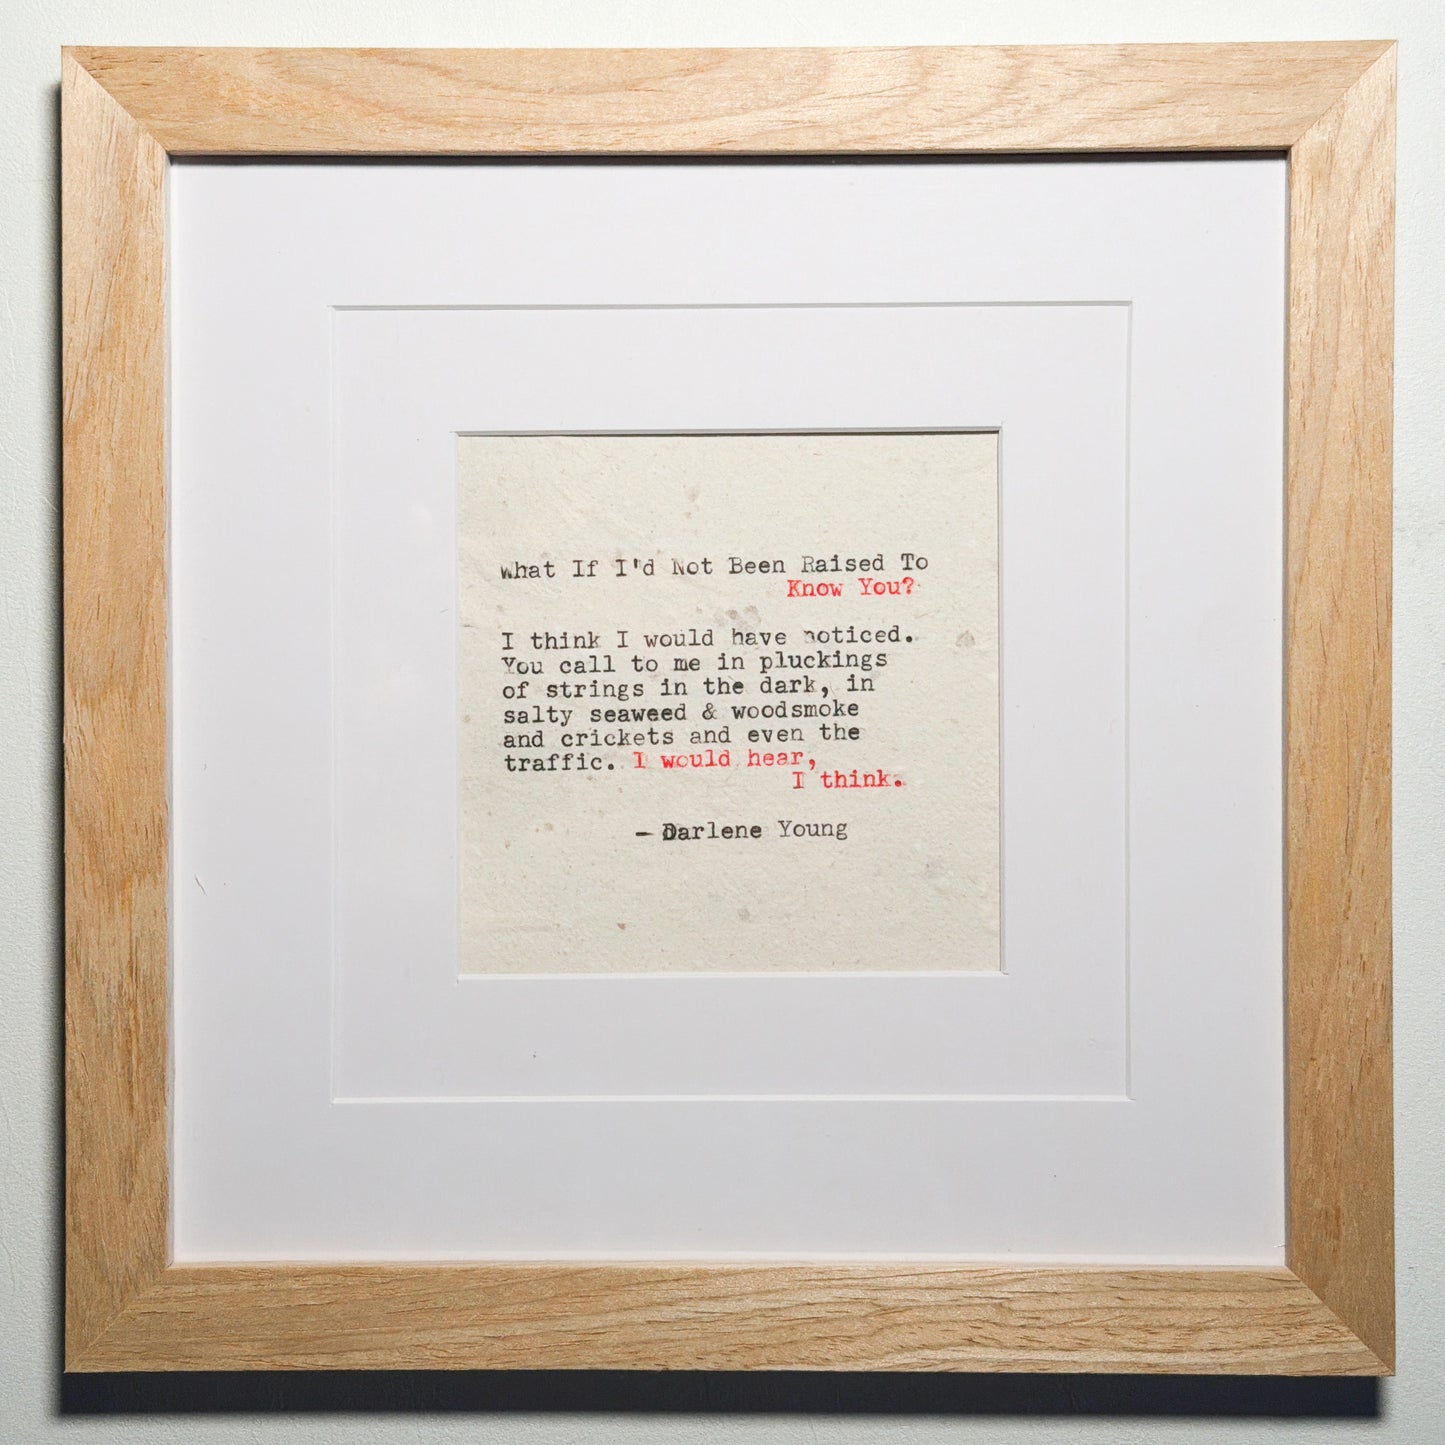 What If I'd Not Been Raised To
Know You?
I think I would have noticed.
You call to me in pluckings
of strings in the dark, in
salty seaweed & woodsmoke
and crickets and even the
traffic. I would hear,
I think.
— Darlene Young